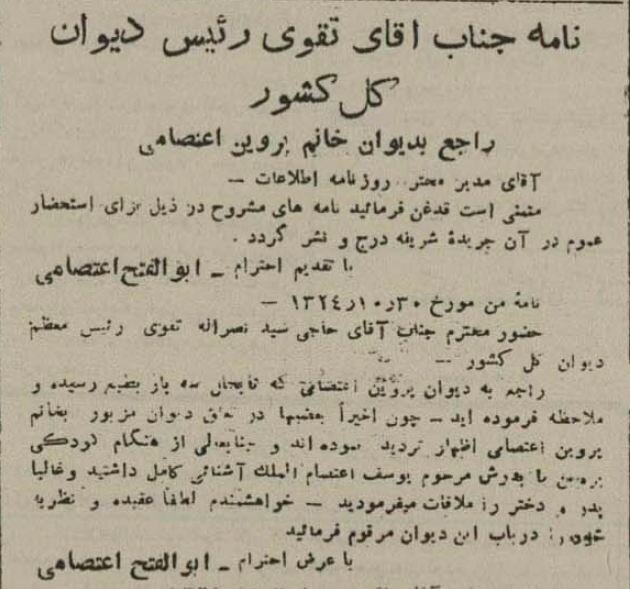 نامه جناب اقای تقوی رئیس دیوان
کل کشور
راجع بدیوان خانم پروین اعتصامی
آقای مدیر محترم روزنامه اطلاعات –
متمنی است قدغن فرمائید نامه های مشروح در ذیل برای استحضار
عموم در آن جریدهٔ شریفه درج و نشر گردد .
با تقدیم احترام ـ ابوالفتح اعتصامی
نامهٔ من مورخ ۳۰ر۱۰ر۱۳۲٤ –
حضور محترم جناب آقای حاجی سید نصراله تقوی رئیس معظم
دیوان کل کشور –
راجع به دیوان پروین اعتصامی که تابحال سه بار بطبع رسیده و
ملاحظه فرموده اید – چون اخیراً بعضیها در تعلق دیوان مزبور بخانم
پروین اعتصامی اظهار تردید نموده اند و جنابعالی از هنگام کودکی
پروین با پدرش مرحوم یوسف اعتصام الملك آشنائی کامل داشتید وغالبا
پدر و دختر را ملاقات میفرمودید – خواهشمندم لطفاً عقیده و نظریه
خود را درباب این دیوان مرقوم فرمائید
با عرض احترام ـ ابوالفتح اعتصامی